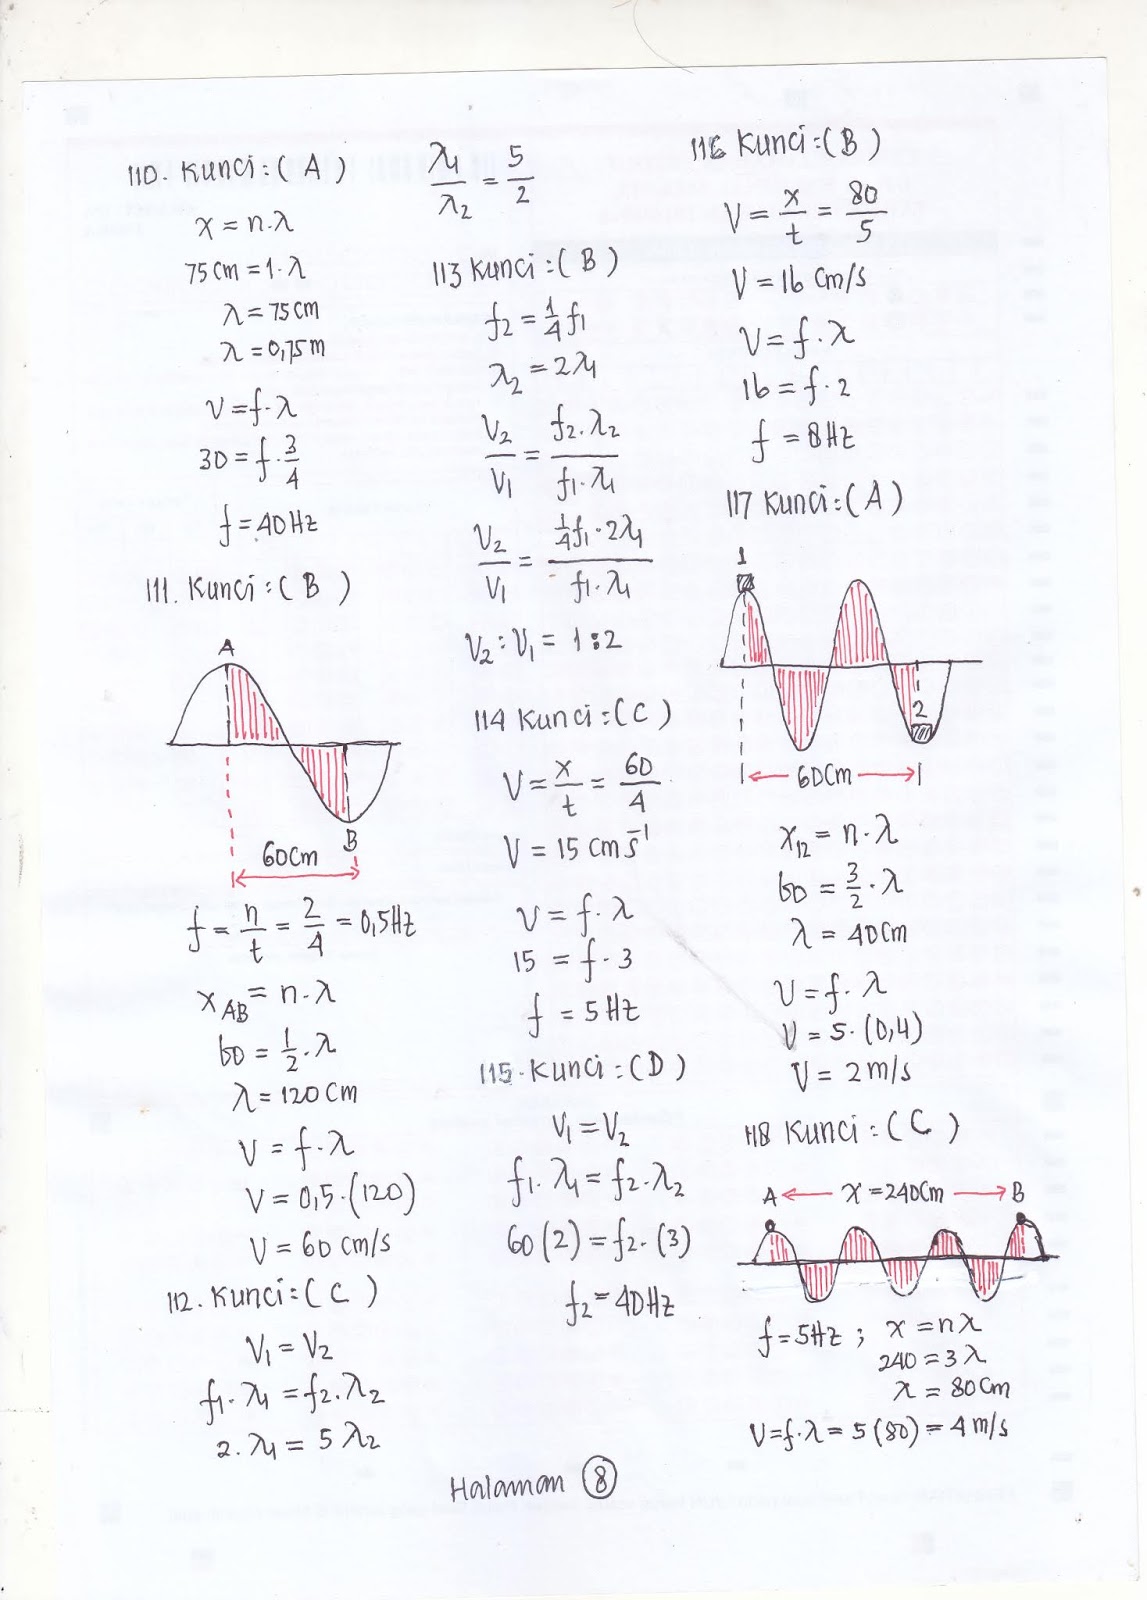 110. Kunci : (A)
x = n.λ
75 cm = 1.λ
λ = 75 cm
λ = 0,75 m
V = f.λ
30 = f.3/4
f = 40 Hz
111. Kunci : (B)
A
B
60 cm
f = n/t = 2/4 = 0,5 Hz
x_AB = n.λ
60 = 1/2.λ
λ = 120 cm
V = f.λ
V = 0,5.(120)
V = 60 cm/s
112. Kunci : (C)
V₁ = V₂
f₁.λ₁ = f₂.λ₂
2.λ₁ = 5 λ₂
λ₁/λ₂ = 5/2
113 Kunci : (B)
f₂ = 1/4 f₁
λ₂ = 2λ₁
V₂/V₁ = f₂.λ₂/f₁.λ₁
V₂/V₁ = 1/4 f₁.2λ₁/f₁.λ₁
V₂ : V₁ = 1 : 2
114 Kunci : (C)
V = x/t = 60/4
V = 15 cm s⁻¹
V = f.λ
15 = f.3
f = 5 Hz
115. Kunci : (D)
V₁ = V₂
f₁.λ₁ = f₂.λ₂
60 (2) = f₂.(3)
f₂ = 40 Hz
116 Kunci : (B)
V = x/t = 80/5
V = 16 cm/s
V = f.λ
16 = f.2
f = 8 Hz
117 Kunci : (A)
1
2
60 cm
x₁₂ = n.λ
60 = 3/2.λ
λ = 40 cm
V = f.λ
V = 5.(0,4)
V = 2 m/s
118 Kunci : (C)
A x = 240 cm B
f = 5 Hz ; x = nλ
240 = 3λ
λ = 80 cm
V = f.λ = 5 (80) = 4 m/s
Halaman 8